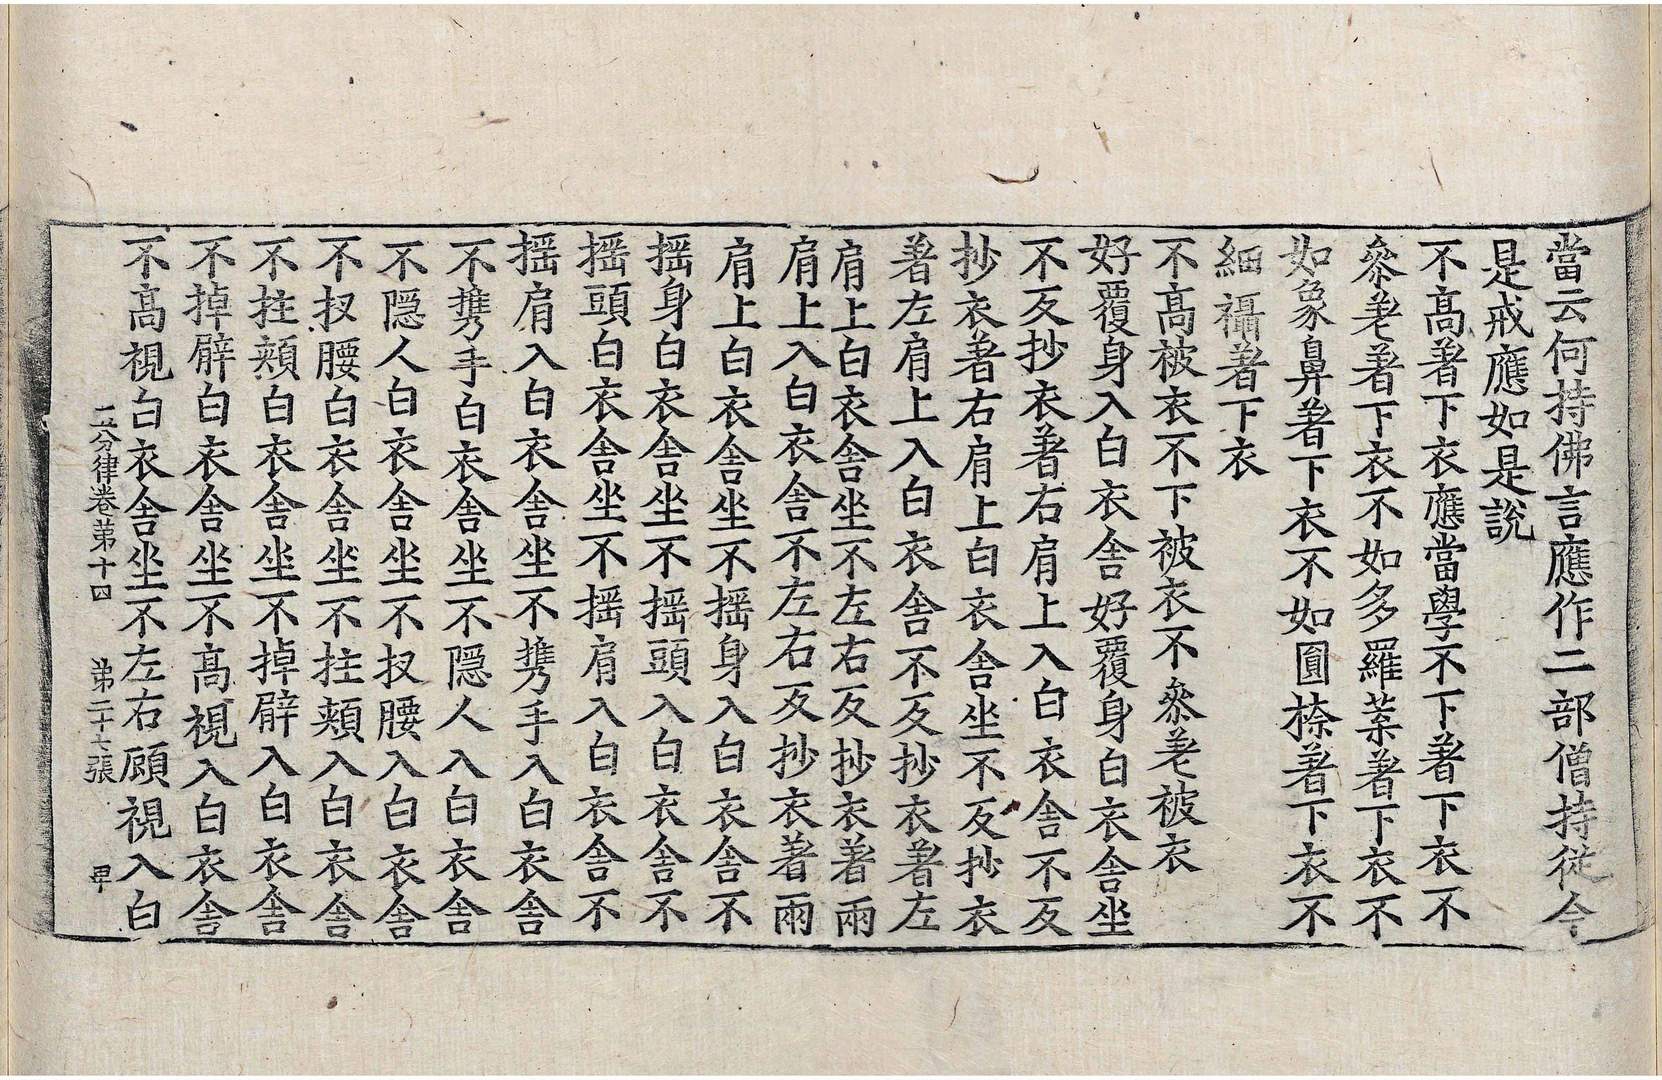 當云何持佛言應作二部僧持從今
是戒應如是說
不髙著下衣應當學不下著下衣不
叅差著下衣不如多羅葉著下衣不
如象鼻著下衣不如圓捺著下衣不
細襵著下衣
不髙被衣不下被衣不叅差被衣
好覆身入白衣舎好覆身白衣舎坐
不反抄衣著右肩上入白衣舎不反
抄衣著右肩上白衣舎坐不反抄衣
著左肩上入白衣舎不反抄衣著左
肩上白衣舎坐不左右反抄衣著兩
肩上入白衣舎不左右反抄衣著兩
肩上白衣舎坐不揺身入白衣舎不
揺身白衣舎坐不揺頭入白衣舎不
揺頭白衣舎坐不揺肩入白衣舎不
揺肩入白衣舎坐不携手入白衣舎
不携手白衣舎坐不隠人入白衣舎
不隠人白衣舎坐不扠腰入白衣舎
不扠腰白衣舎坐不拄頰入白衣舎
不拄頰白衣舎坐不掉臂入白衣舎
不掉臂白衣舎坐不髙視入白衣舎
不髙視白衣舎坐不左右顧視入白
五分律卷苐十四 苐二十七張